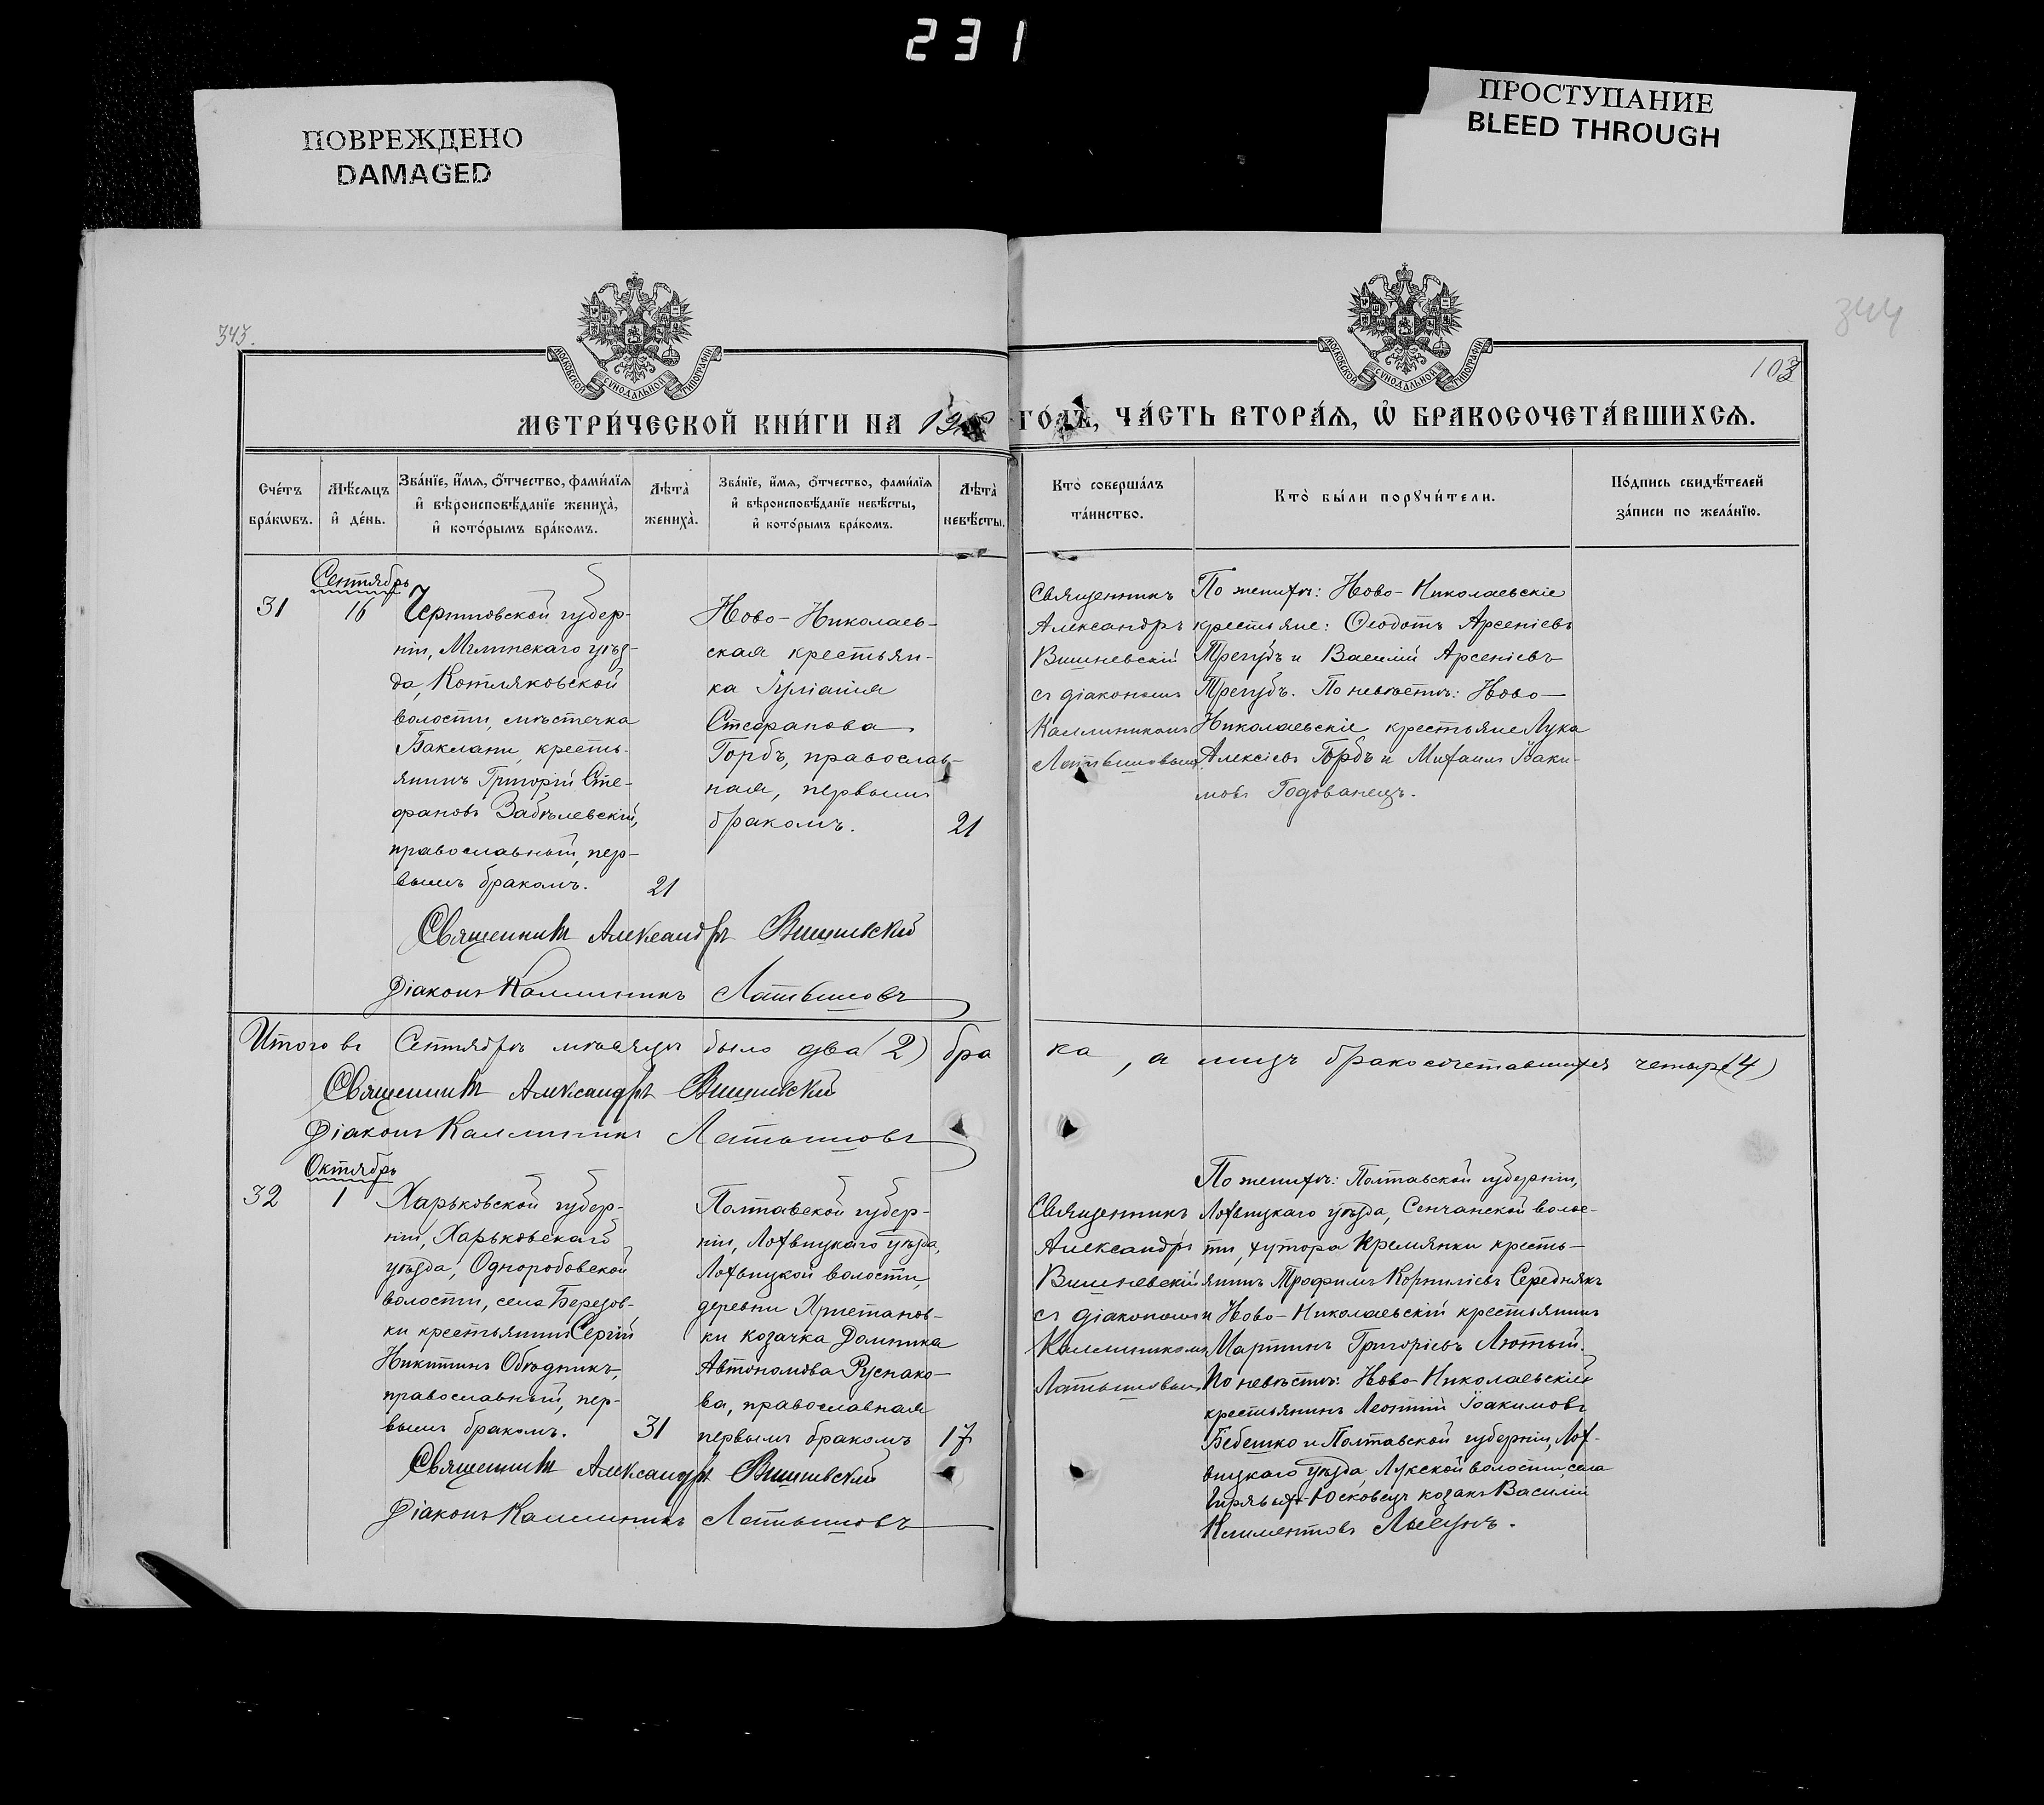 231
ПОВРЕЖДЕНО
DAMAGED
ПРОСТУПАНИЕ
BLEED THROUGH
343.
344
103
МОСКОВСКОЙ СѴНОДАЛЬНОЙ ТИПОГРАФІИ
МОСКОВСКОЙ СѴНОДАЛЬНОЙ ТИПОГРАФІИ
МЕТРИ́ЧЕСКОЙ КНИ́ГИ НА ГО́ДЪ, ЧА́СТЬ ВТОРА́Ѧ, Ѽ БРАКОСОЧЕТА́ВШИХСѦ.
Сче́тъ
бра́кѡвъ.
Мѣ́сѧцъ
и҆ де́нь.
Зва́нїе, и҆́мѧ, ѻ҆́тчество, фами́лїѧ
и҆ вѣроисповѣ́данїе жениха̀,
и҆ кото́рымъ бра́комъ.
Лѣта̀
жениха̀.
Зва́нїе, и҆́мѧ, ѻ҆́тчество, фами́лїѧ
и҆ вѣроисповѣ́данїе невѣ́сты,
и҆ кото́рымъ бра́комъ.
Лѣта̀
невѣ́сты.
Кто̀ соверша́лъ
та́инство.
Кто̀ бы́ли порꙋчи́тели.
По́дпись свидѣ́телей
за́писи по жела́нїю.
Сентябрь
31
16
Черниговской губер-
ніи, Мглинскаго уѣз-
да, Котляковской
волости, мѣстечка
Баклани, кресть-
янинъ Григорій Сте-
фановъ Забѣлевскій,
православный, пер-
вымъ бракомъ.
21
Ново-Николаев-
ская крестьян-
ка Іуліанія
Стефанова
Горбъ, православ-
ная, первымъ
бракомъ.
21
Священникъ
Александръ
Вишневскій
съ діакономъ
Каллиникомъ
Латышовымъ
По женихѣ: Ново-Николаевскіе
крестьяне: Ѳеодотъ Арсеніевъ
Трегубъ и Василій Арсеніевъ
Трегубъ. По невѣстѣ: Ново-
Николаевскіе крестьяне Лука
Алексіевъ Горбъ и Михаилъ Іоаки-
мовъ Годованецъ.
Священникъ Александръ Вишневскій
Діаконъ Каллиникъ Латышовъ
Итого въ Сентябрѣ мѣсяцѣ было два (2) бра
ка, а лицъ бракосочетавшихся четыре (4)
Священникъ Александръ Вишневскій
Діаконъ Каллиникъ Латышовъ
Октябрь
32
1
Харьковской губер-
ніи, Харьковскаго
уѣзда, Одноробовской
волости, села Березов-
ки крестьянинъ Сергій
Никитинъ Обѣдникъ,
православный, пер-
вымъ бракомъ.
31
Полтавской губер-
ніи, Лохвицкаго уѣзда,
Лохвицкой волости,
деревни Христанов-
ки козачка Домника
Автономова Руснако-
ва, православная
первымъ бракомъ
17
Священникъ
Александръ
Вишневскій
съ діакономъ
Каллиникомъ
Латышовымъ
По женихѣ: Полтавской губерніи,
Лохвицкаго уѣзда, Сенчанской волос-
ти, хутора Кремянки кресть-
янинъ Трофимъ Корниліевъ Середнякъ
и Ново-Николаевскій крестьянинъ
Мартинъ Григорьевъ Лютый.
По невѣстѣ: Ново-Николаевскій
крестьянинъ Леонтій Іоакимовъ
Бебешко и Полтавской губерніи, Лох-
вицкаго уѣзда, Лукской волости, села
Юсковецъ козакъ Василій
Климентовъ
Священникъ Александръ Вишневскій
Діаконъ Каллиникъ Латышовъ